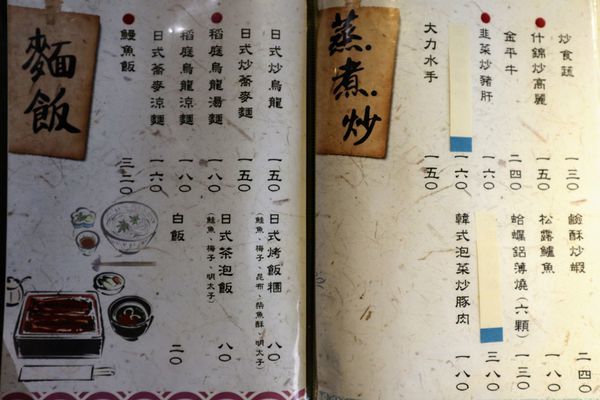 蒸.煮.炒
炒食蔬 一三〇
什錦炒高麗 一五〇
金平牛 二四〇
韭菜炒豬肝 一六〇
一六〇
大力水手 一五〇
鹹酥炒蝦 二四〇
松露鱸魚 一八〇
蛤蠣鋁薄燒(六顆) 一三〇
三八〇
韓式泡菜炒豚肉 一八〇
麵飯
日式炒烏龍 一五〇
日式炒蕎麥麵 一五〇
稻庭烏龍湯麵 一八〇
稻庭烏龍涼麵 一八〇
日式蕎麥涼麵 一六〇
鰻魚飯 三二〇
日式烤飯糰 八〇
(鮭魚、梅子、昆布、柴魚酥、明太子)
日式茶泡飯 八〇
(鮭魚、梅子、明太子)
白飯 二〇